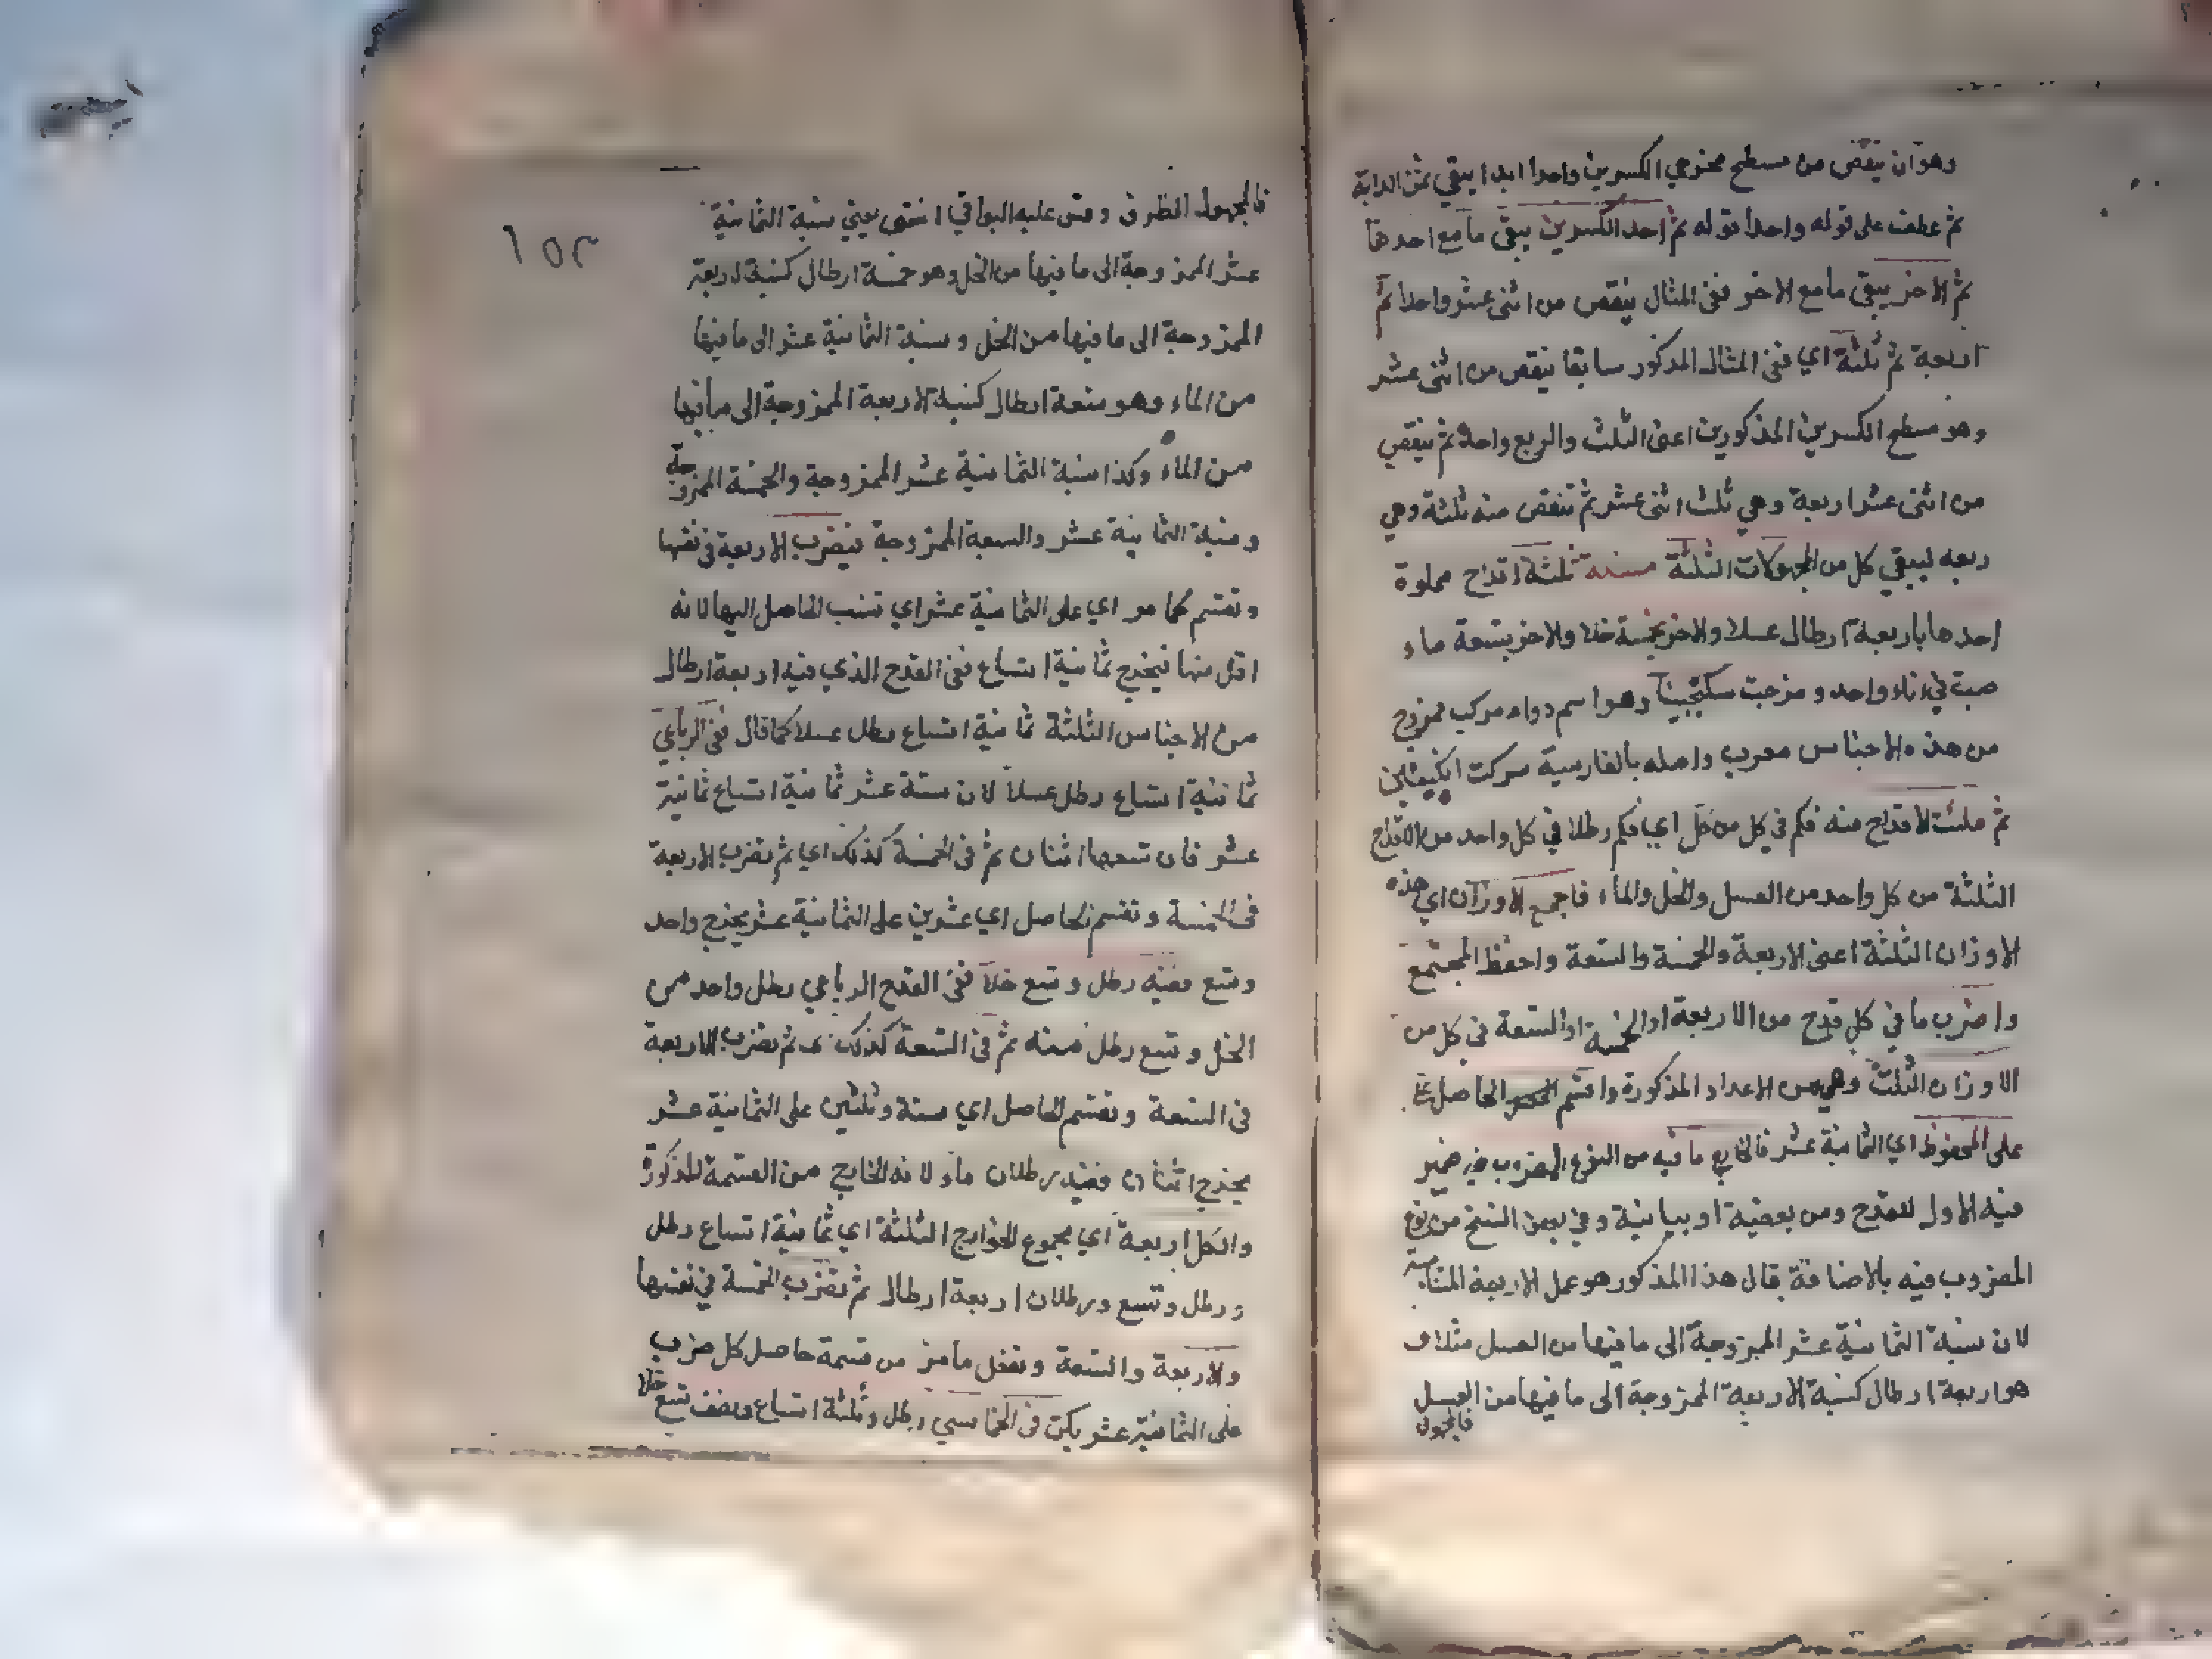 وهو ان ينقص من مسطح مخرجي الكسرين واحدا ابدا يبقي ثمن الدابة
ثم عطف على قوله واحدا قوله ثم احد الكسرين يبقى ما مع احدهما
ثم الاخر يبقى ما مع الاخر ففى المثال ينقص من اثنى عشر واحدا ثم
اربعة ثم ثلثة اي ففى المثال المذكور سابقا ينقص من اثنى عشر
وهو مسطح الكسرين المذكورين اعنى الثلث والربع واحدا ثم ينقص
من اثنى عشر اربعة وهي ثلث اثنى عشر ثم تنقص منه ثلثة وهي
ربعه ليبقي كل من المجهولات الثلثة مسئلة ثلثة اقداح مملوة
احدها باربعة ارطال عسلا والاخر بخمسة خلا والاخر بتسعة ماء
صبت في اناء واحد و مزجت سكنجبينا وهو اسم دواء مركب ممزوج
من هذه الاجناس معرب واصله بالفارسية سركت انكبين
ثم ملئت الاقداح منه فكم في كل من كل اي فكم رطلا في كل واحد من الاقداح
الثلثة من كل واحد من العسل والخل والماء فاجمع الاوزان اي هذه
الاوزان الثلثة اعنى الاربعة والخمسة والتسعة واحفظ المجتمع
واضرب ما في كل قدح من الاربعة او الخمسة او التسعة في كل من
الاوزان الثلث وهي من الاعداد المذكورة واقسم الحاصل
على المحفوظ اي الثمانية عشر فالخارج ما فيه من النوع المضروب فيه ضمير
فيه الاول للقدح ومن بعضية او بيانية وفي بعض النسخ من نوع
المضروب فيه بالاضافة قال هذا المذكور هو عمل الاربعة المتناسبة
لان نسبة الثمانية عشر الممزوجة الى ما فيها من العسل مثلا و
هو اربعة ارطال كنسبة الاربعة الممزوجة الى ما فيها من العسل
فالمجهول
١٥٢
فالمجهول الطرف وقس عليه البواقي انتهى يعني نسبة الثمانية
عشر الممزوجة الى ما فيها من الخل وهو خمسة ارطال كنسبة اربعة
الممزوجة الى ما فيها من الخل و نسبة الثمانية عشر الى ما فيها
من الماء وهو تسعة ارطال كنسبة الاربعة الممزوجة الى ما فيها
من الماء وكذا نسبة الثمانية عشر الممزوجة والخمسة الممزوجة
ونسبة الثمانية عشر والتسعة الممزوجة فيضرب الاربعة في نفسها
وتقسم كما مر اي على الثمانية عشر اي تنسب الحاصل اليها لانه
اقل منها فيخرج ثمانية اتساع ففى القدح الذي فيه اربعة ارطال
من الاجناس الثلثة ثمانية اتساع رطل عسلا كما قال ففى الرباعي
ثمانية اتساع رطل عسلا لان ستة عشر ثمانية اتساع ثمانية
عشر فان تسعها اثنان ثم فى الخمسة كذلك اي ثم يضرب الاربعة
فى الخمسة وتقسم الحاصل اي عشرين على الثمانية عشر يخرج واحد
وتسع ففيه رطل وتسع خلا ففى القدح الرباعي رطل واحد من
الخل وتسع رطل منه ثم فى التسعة كذلك اى ثم يضرب الاربعة
فى التسعة وتقسم الحاصل اي ستة وثلثين على الثمانية عشر
يخرج اثنان ففيه رطلان ماء لانه الخارج من القسمة المذكورة
والكل اربعة اي مجموع الخوارج الثلثة اي ثمانية اتساع رطل
ورطل وتسع ورطلان اربعة ارطال ثم تضرب الخمسة في نفسها
والاربعة والتسعة وتفعل ما مر من قسمة حاصل كل ضرب
على الثمانية عشر يكن فى الخماسي رطل وثلثة اتساع ونصف تسع خلا